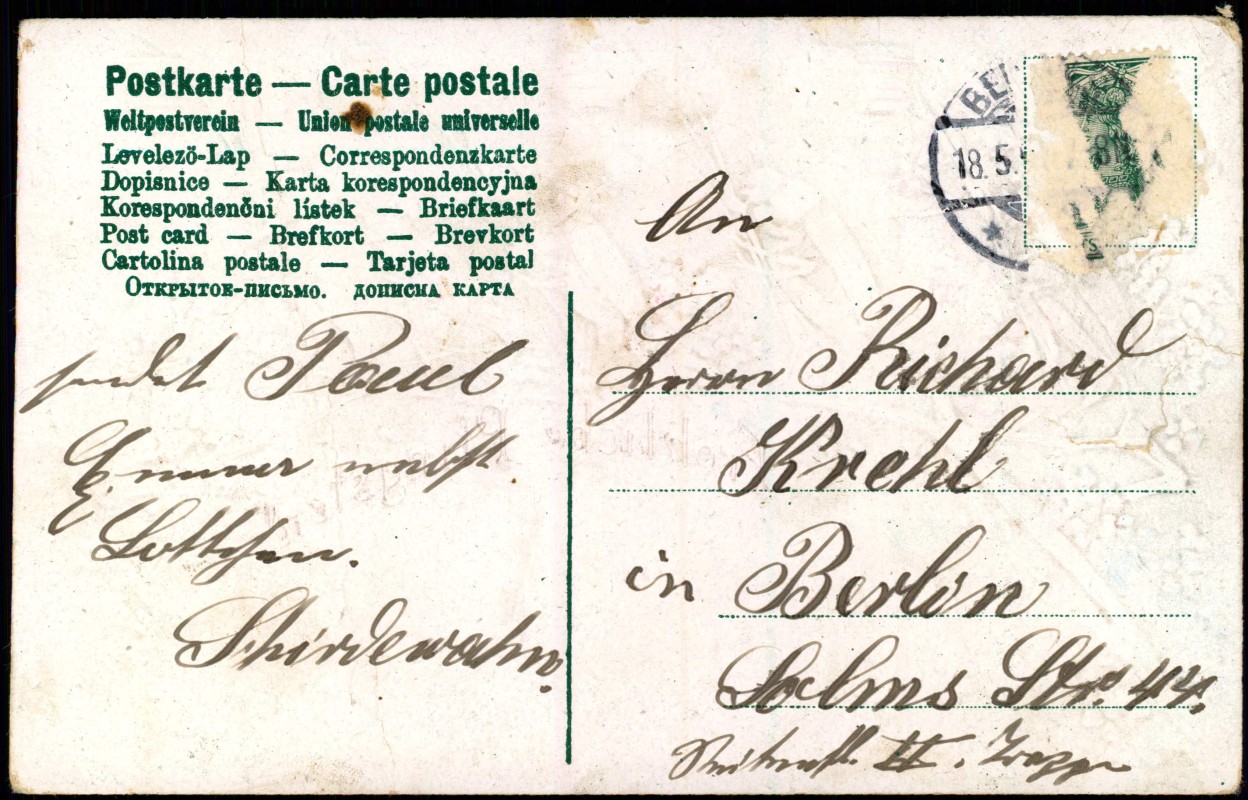 Postkarte — Carte postale
Weltpostverein — Union postale universelle
Levelezö-Lap — Correspondenzkarte
Dopisnice — Karta korespondencyjna
Korespondenčni lístek — Briefkaart
Post card — Brefkort — Brevkort
Cartolina postale — Tarjeta postal
Открытое-письмо. дописна карта
BE
18.5.
An
Herrn Richard
Krehl
in Berlin
Solms Str. 44.
Seitenfl. II. Trepp
sendet Paul
Emmer nebst
Lottchen.
Schirdewahn.